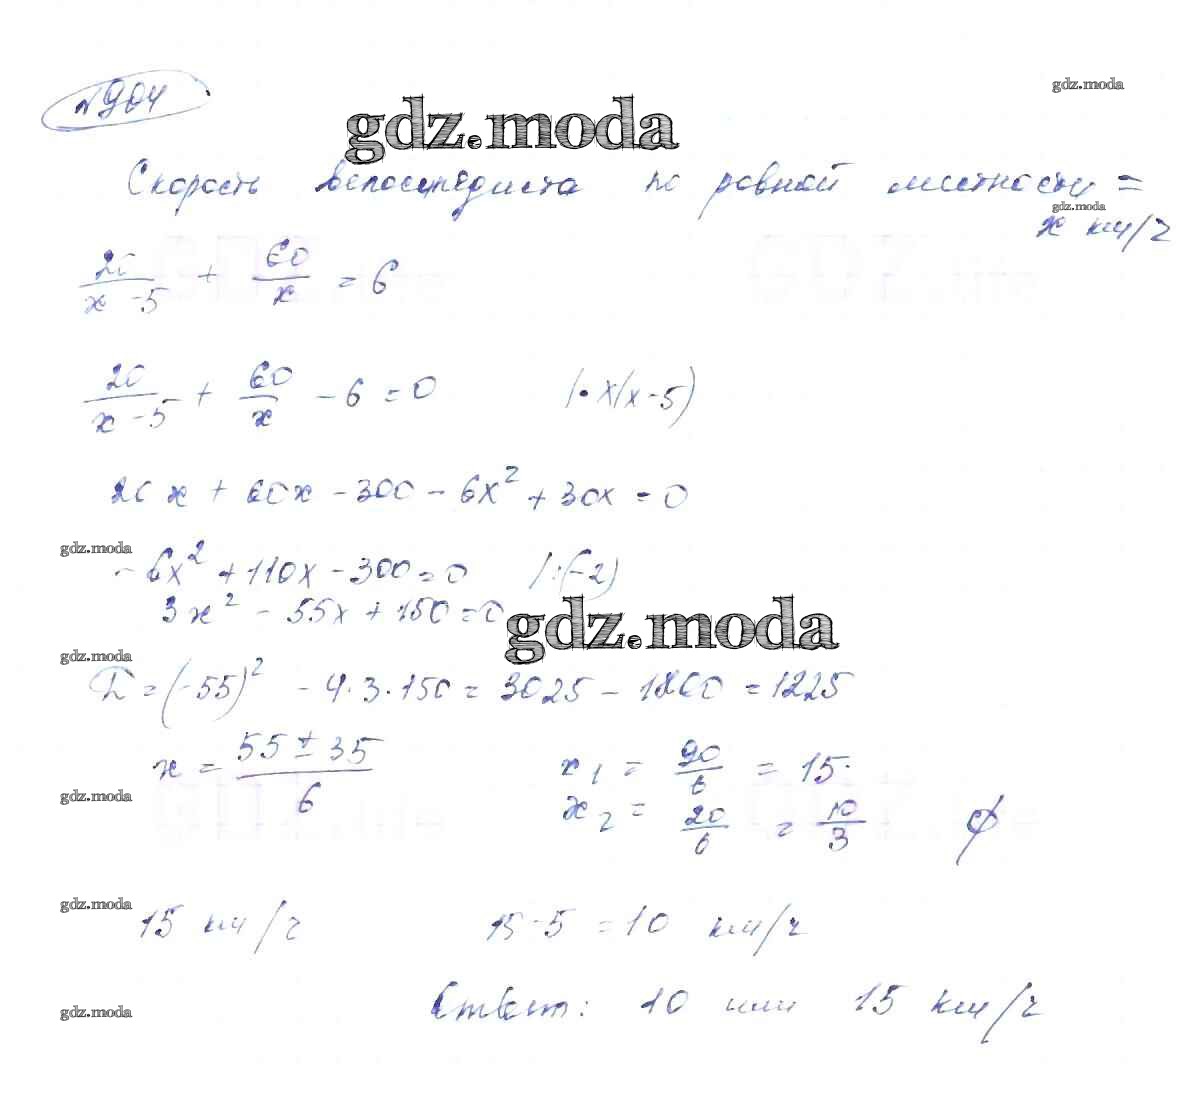 №904
gdz.moda
gdz.moda
Скорость велосипедиста по ровной местности =
gdz.moda
x км/ч
20/(x-5) + 60/x = 6
20/(x-5) + 60/x - 6 = 0 |·x(x-5)
20x + 60x - 300 - 6x² + 30x = 0
gdz.moda
-6x² + 110x - 300 = 0 |:(-2)
3x² - 55x + 150 = 0
gdz.moda
gdz.moda
D = (-55)² - 4·3·150 = 3025 - 1800 = 1225
x = (55 ± 35)/6 x₁ = 90/6 = 15.
gdz.moda
x₂ = 20/6 = 10/3 ∅
gdz.moda
15 км/ч 15-5 = 10 км/ч
gdz.moda
Ответ: 10 или 15 км/ч